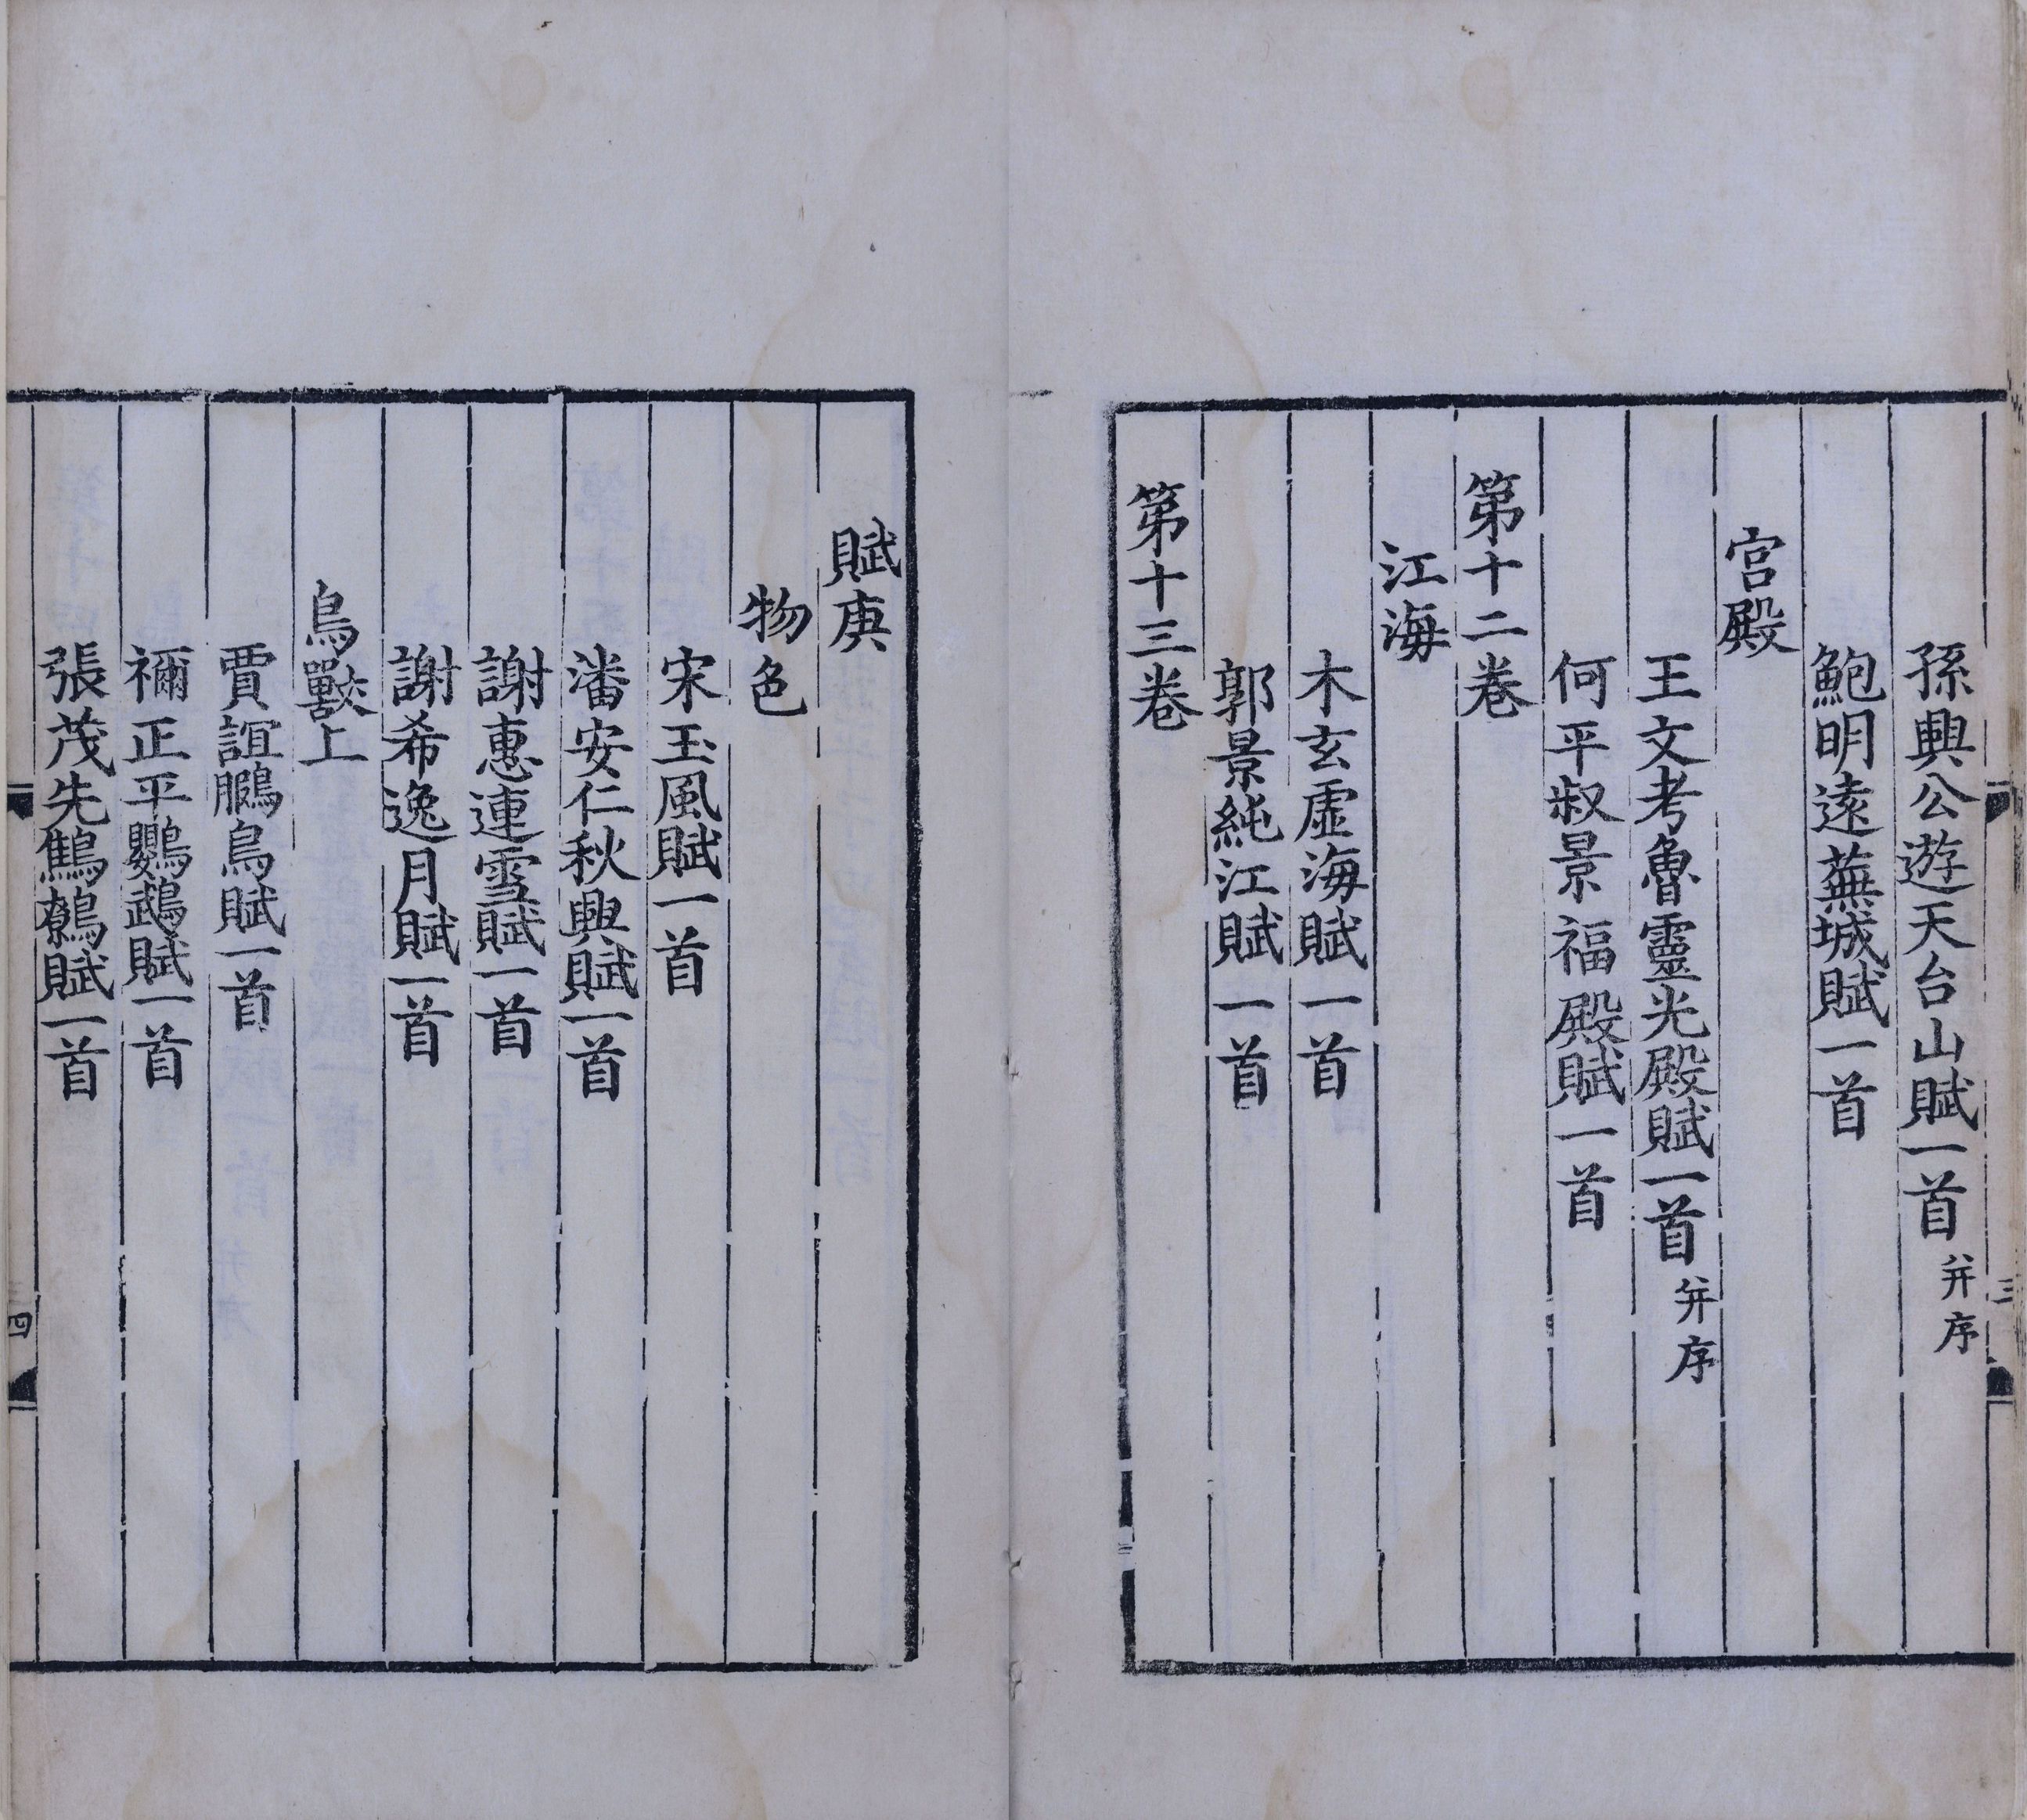 孫興公遊天台山賦一首并序
鮑明遠蕪城賦一首
宮殿
王文考魯靈光殿賦一首并序
何平叔景福殿賦一首
第十二卷
江海
木玄虛海賦一首
郭景純江賦一首
第十三卷
三
賦庚
物色
宋玉風賦一首
潘安仁秋興賦一首
謝惠連雪賦一首
謝希逸月賦一首
鳥獸上
賈誼鵩鳥賦一首
禰正平鸚鵡賦一首
張茂先鷦鷯賦一首
四